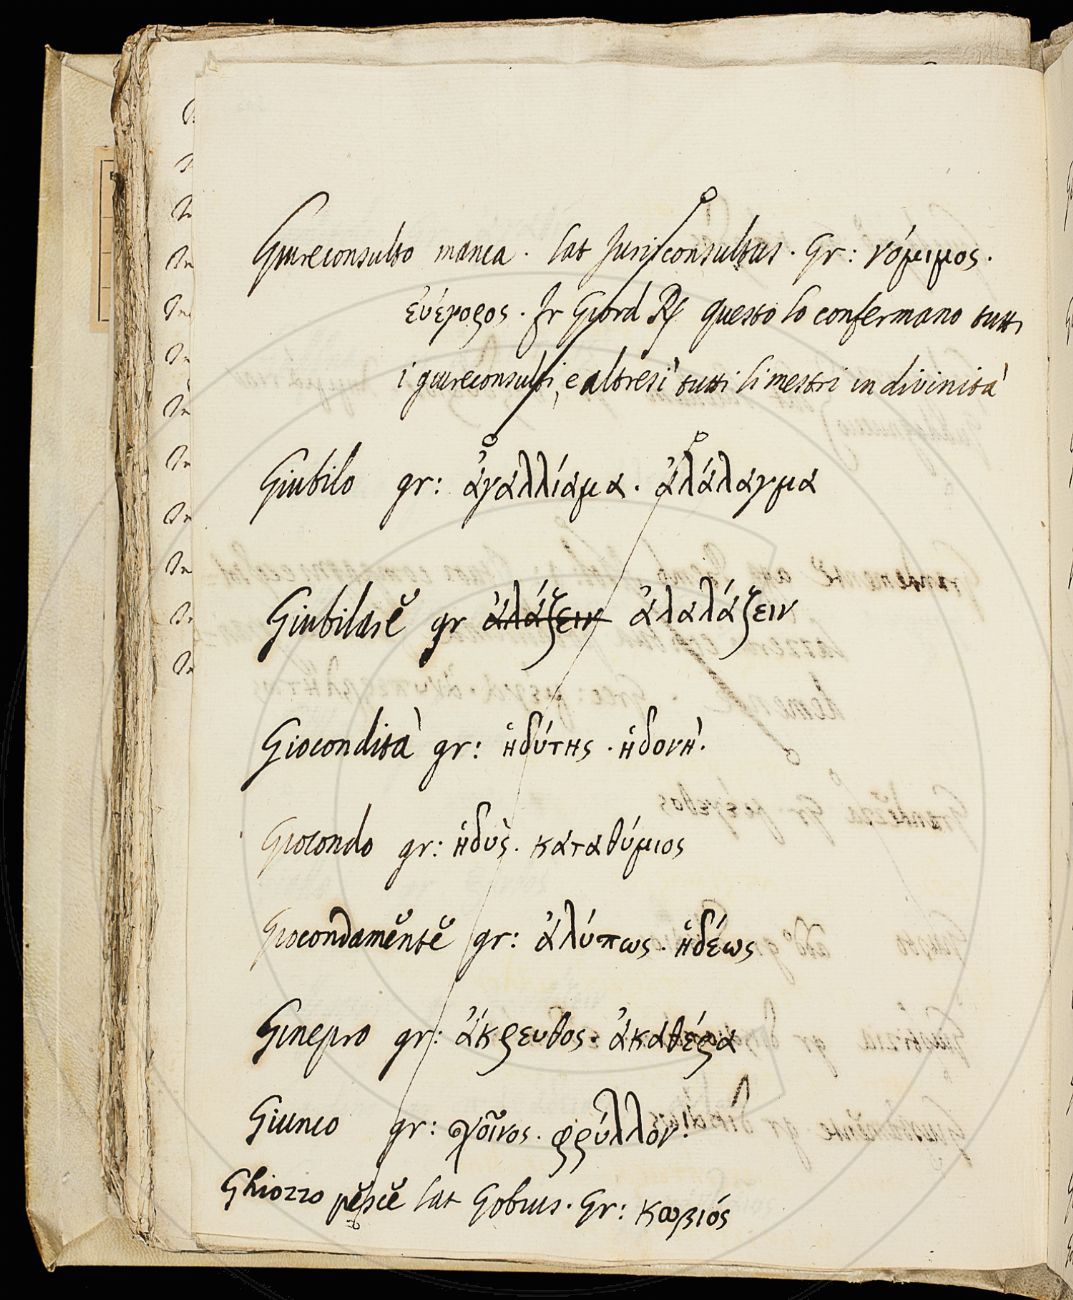 Giureconsulto manca. lat Jurisconsultus. Gr: νόμιμος.
Fr Giord Pr questo lo confermano tutti
i giureconsulti, e altresì tutti li mestri in divinità
Giubilo gr: ἀγαλλίαμα. ἀλάλαγμα
Giubilare gr ἀλάζειν ἀλαλάζειν
Giocondità gr: ἡδύτης. ἡδονή.
Giocondo gr: ἡδύς. καταθύμιος
Giocondamente gr: ἀλύπως. ἡδέως
Ginepro gr: ἄκρευθος. ἀκαθέρα
Giunco gr: σχοῖνος. φρύλλον.
Ghiozzo pesce lat Gobius. Gr: κωβιός